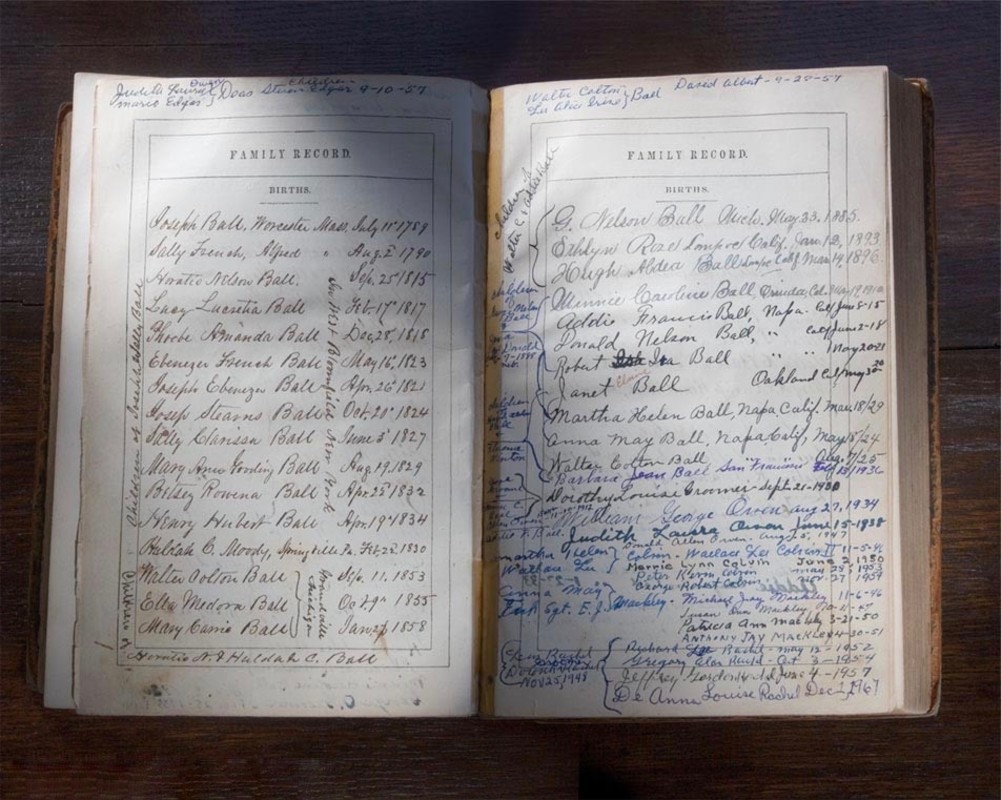 Judith
Marie Edgar } Doas Steven Edgar 9-10-57
Children
FAMILY RECORD.
BIRTHS.
Joseph Ball, Worcester Mass. July 11th 1789
Sally French, Alfred " Aug. 2d 1790
Horatio Nelson Ball, Sep. 25th 1815
Lucy Lucretia Ball Feb. 17th 1817
Phoebe Amanda Ball Dec. 28, 1818
Ebenezer French Ball May 16, 1823
Joseph Ebenezer Ball Apr. 26th 1821
Joseph Stearns Ball Oct. 20th 1824
Sally Clarissa Ball June 5th 1827
Mary Ann Gooding Ball Aug. 19. 1829
Betsey Rowena Ball Apr. 25th 1832
Henry Hubert Ball Apr. 19th 1834
Huldah C. Moody, Springville Pa. Feb. 22d 1830
Walter Colton Ball Sep. 11. 1853
Ella Medora Ball Oct. 29th 1855
Mary Carrie Ball Jan. 27th 1858
Horatio N. & Huldah C. Ball
Children of Joseph & Sally Ball
In West Bloomfield New York
Grandville Michigan
Children of
Walter Colton
Lu Alice Irene } Ball David Albert - 9-27-57
FAMILY RECORD.
BIRTHS.
Children of
Walter C. & Ball
G. Nelson Ball Mich. May 23. 1885.
Ethlyn Roze Lompoc Calif. Jan. 12, 1893
Hugh Aldea Ball Lompoc Calif Mar. 19, 1896
Minnie Caroline Ball,
Addie Francis Ball, Napa. Calif June 8-15
Donald Nelson Ball, " Calif June 2-18
Robert Ira Ball " " " May 20-21
Janet Elaine Ball Oakland Calif May 30
Martha Helen Ball, Napa Calif. Mar. 18/29
Anna May Ball, Napa Calif, May 15/24
Walter Colton Ball Aug. 7/25
Barbara Jean Ball San Francisco 1936
Dorothy Louise Groomer - Sept. 21-1930
William George Owen Aug 27, 1934
Judith Laura Owen June 15-1938
Donald Allen Owen. August 5, 1947
Martha Helen } Colvin - Wallace Lee Colvin II 11-5-46
Wallace Lee } Merrie Lynn Colvin June 2, 1950
Peter Kern Colvin May 28 - 1953
George Robert Colvin Nov. 27 1954
Anna May
Tech Sgt. E. J. } Mackley - Michael Jay Mackley 11-6-46
Susan Ann Mackley
Patricia Ann Mackley 3-21-50
ANTHONY JAY MACKLEY 4-30-51
Rubard Lee Rachel - May 12 - 1952
Gregory Alan Rachel - Oct 3 - 1954
Jeffrey Gordon June 4 - 1957
De Anna Louise Rachel Dec 1, 1967
NOV 25, 1948